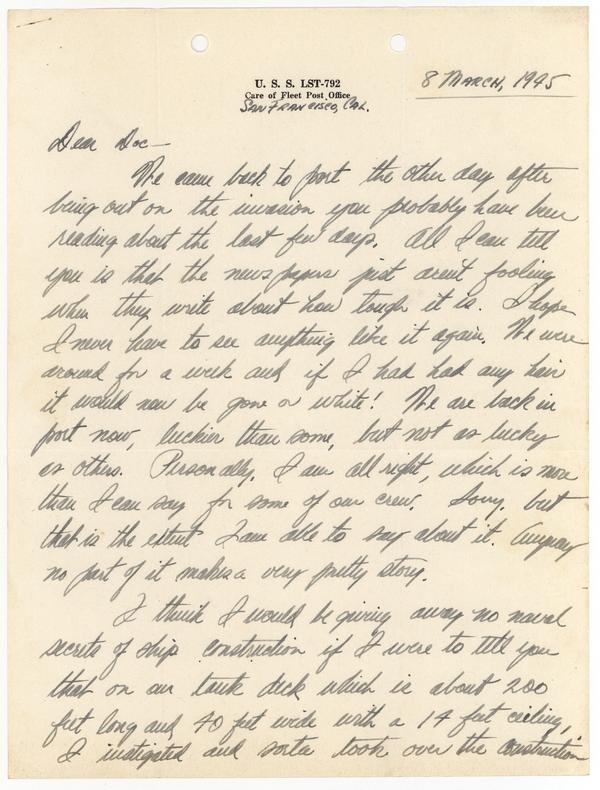 U. S. S. LST-792
Care of Fleet Post Office
San Francisco, Cal.
8 March, 1945
Dear Doc—
We came back to port the other day after
being out on the invasion you probably have been
reading about the last few days. All I can tell
you is that the newspapers just aren't fooling
when they write about how tough it is. I hope
I never have to see anything like it again. We were
around for a week and if I had had any hair
it would now be gone or white! We are back in
port now, luckier than some, but not as lucky
as others. Personally, I am all right, which is more
than I can say for some of our crew. Sorry, but
that is the extent I am able to say about it. Anyway
no part of it makes a very pretty story.
I think I would be giving away no naval
secrets of ship construction if I were to tell you
that on our tank deck which is about 200
feet long and 40 feet wide with a 14 feet ceiling,
I instigated and sorta took over the construction